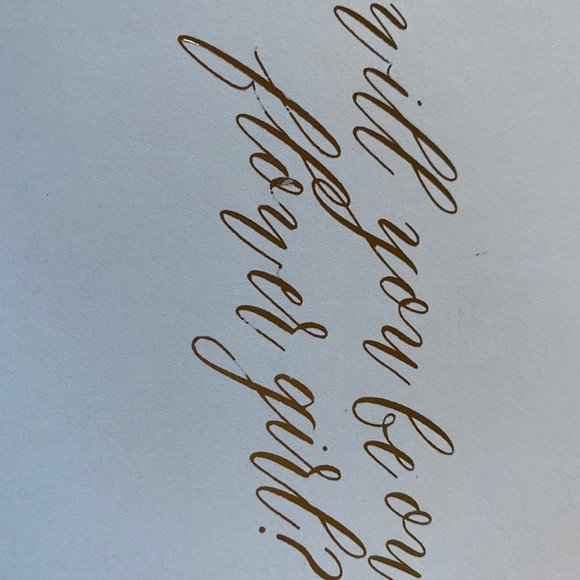 will you be our
flower girl?